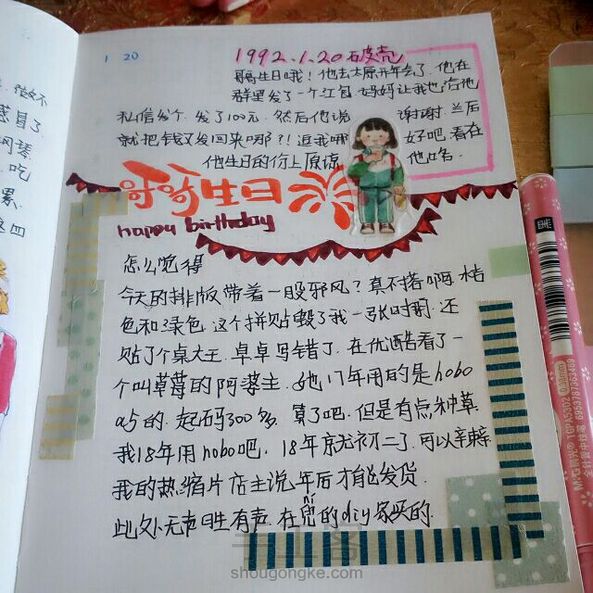 1 20
1992.1.20 破壳
哥哥生日哦！他去太原开年会了.他在
群里发了一个红包 妈妈让我也给他
私信发个.发了100元.然后他说 谢谢.兰后
就把钱又发回来哪？！逗我哪 好吧.看在
他生日的份上原谅 他咯.
哥哥生日
happy birthday
怎么觉得
今天的排版带着一股邪风？真不搭啊.桔
色和绿色.这个拼贴毁了我一张时期.还
贴了个桌大王.卓卓写错了.在优酷看了一
个叫草莓的阿婆主.她17年用的是hobo
a5的.起码300多.算了吧.但是有点种草.
我18年用hobo吧.18年京尤初二了.可以
我的热缩片店主说年后才能发货.
此处无声胜有声.在 的diy家买的.
手工客
shougongke.com
M&G 晨光